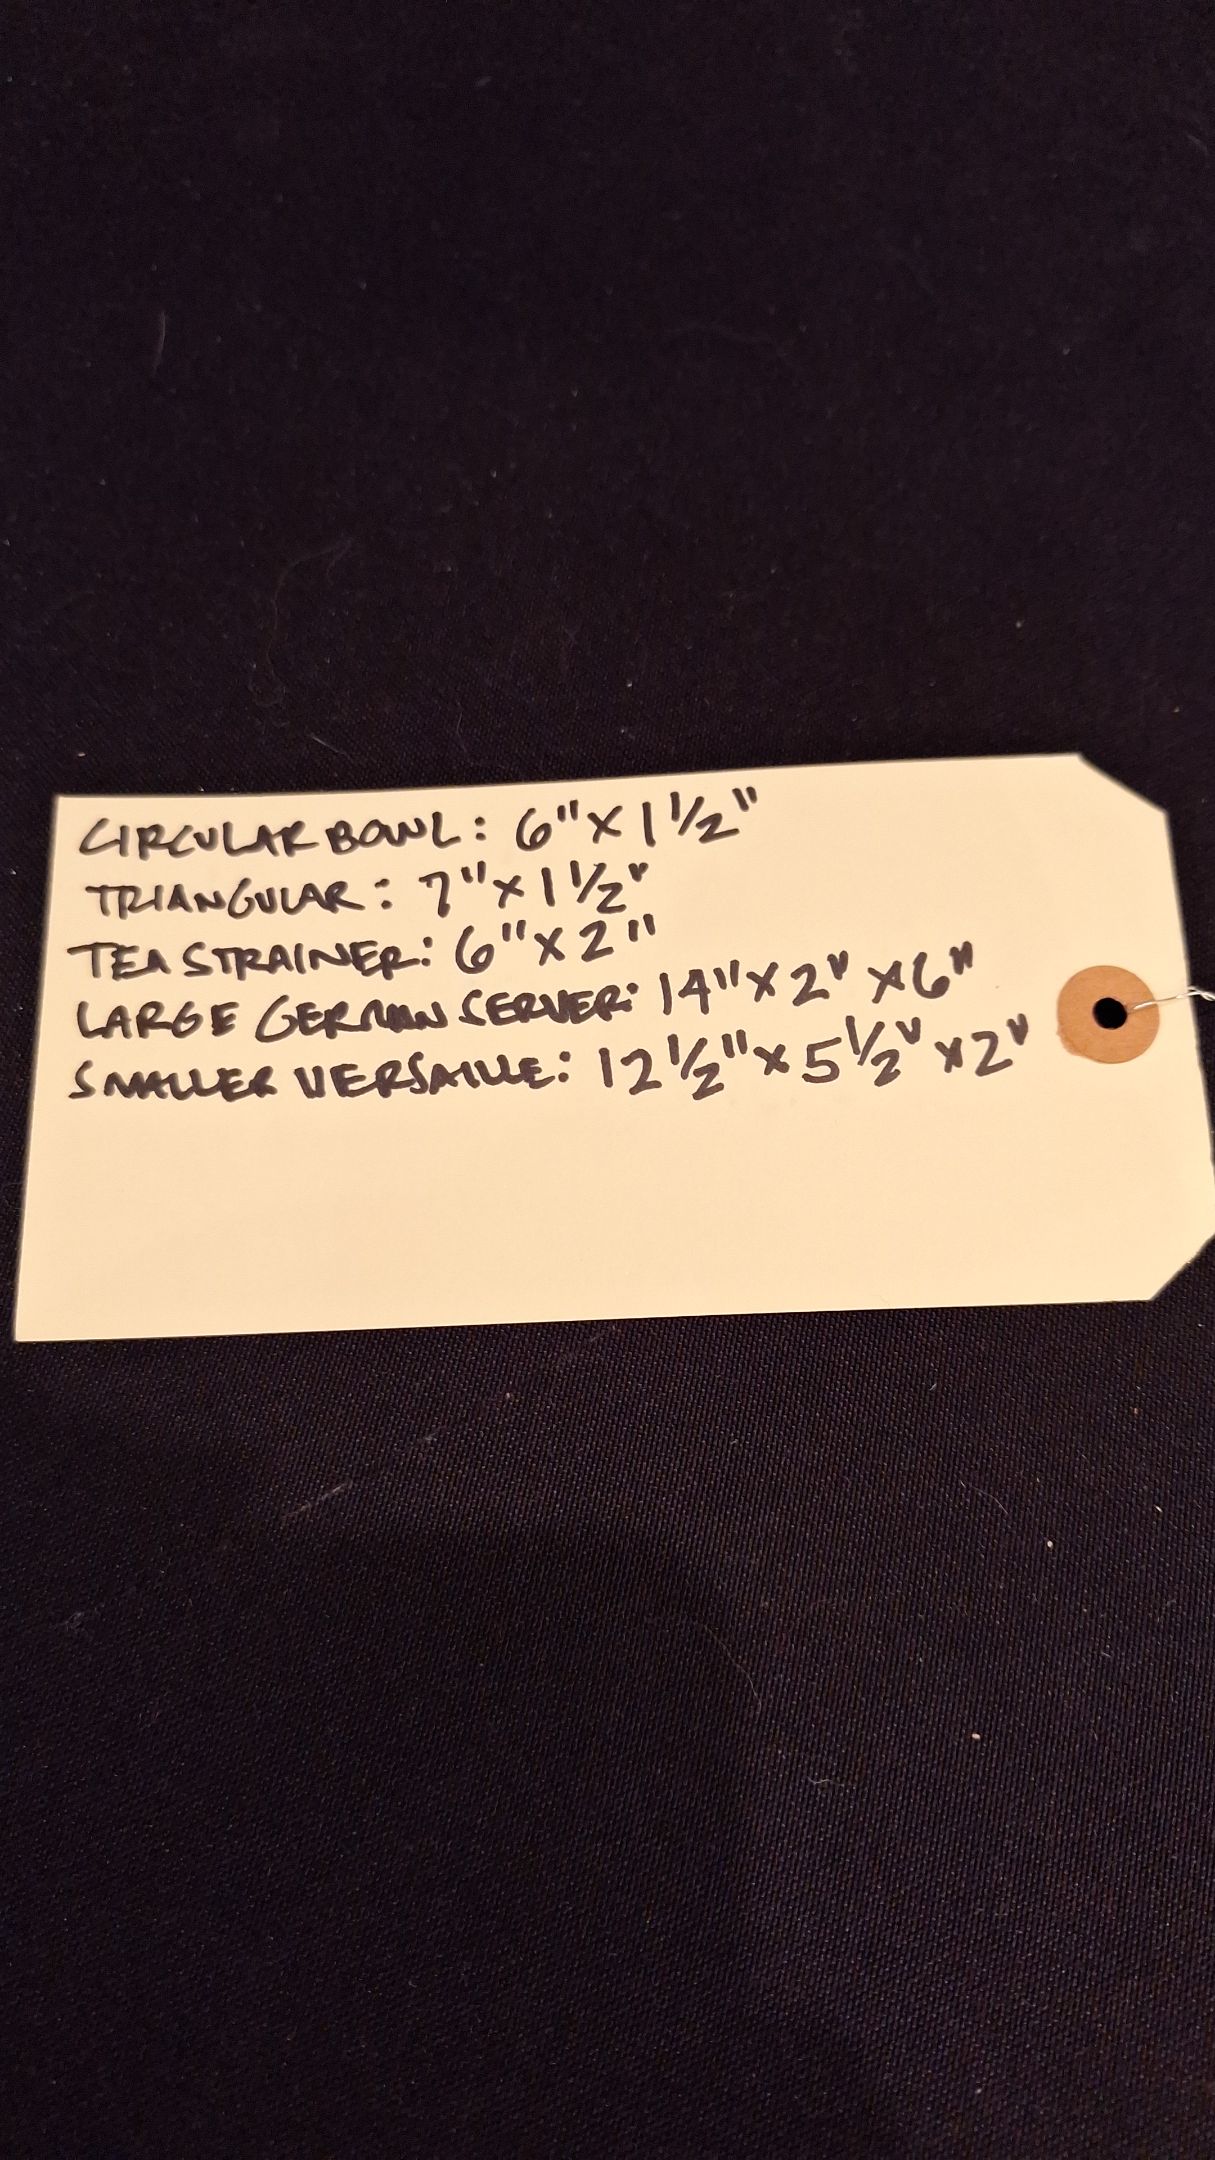 CIRCULAR BOWL: 6" X 1 1/2"
TRIANGULAR: 7" X 1 1/2"
TEA STRAINER: 6" X 2"
LARGE GERMAN SERVER: 14" X 2" X 6"
SMALLER VERSAILLE: 12 1/2" X 5 1/2" X 2"